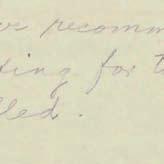 ve recomm
ting for t
lled.